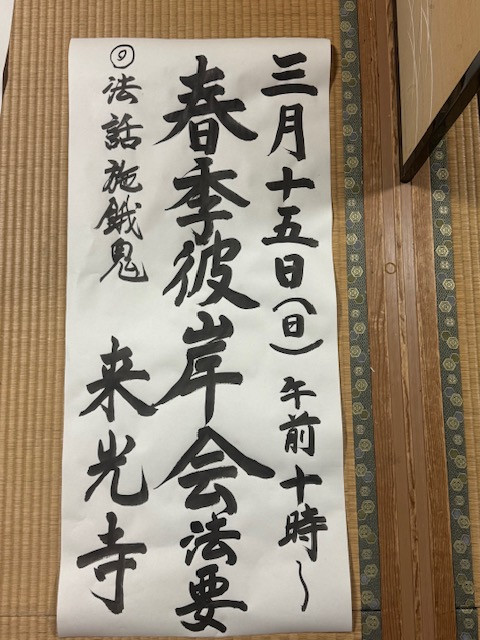 三月十五日(日)午前十時〜
春季彼岸会法要
◎法話施餓鬼
来光寺